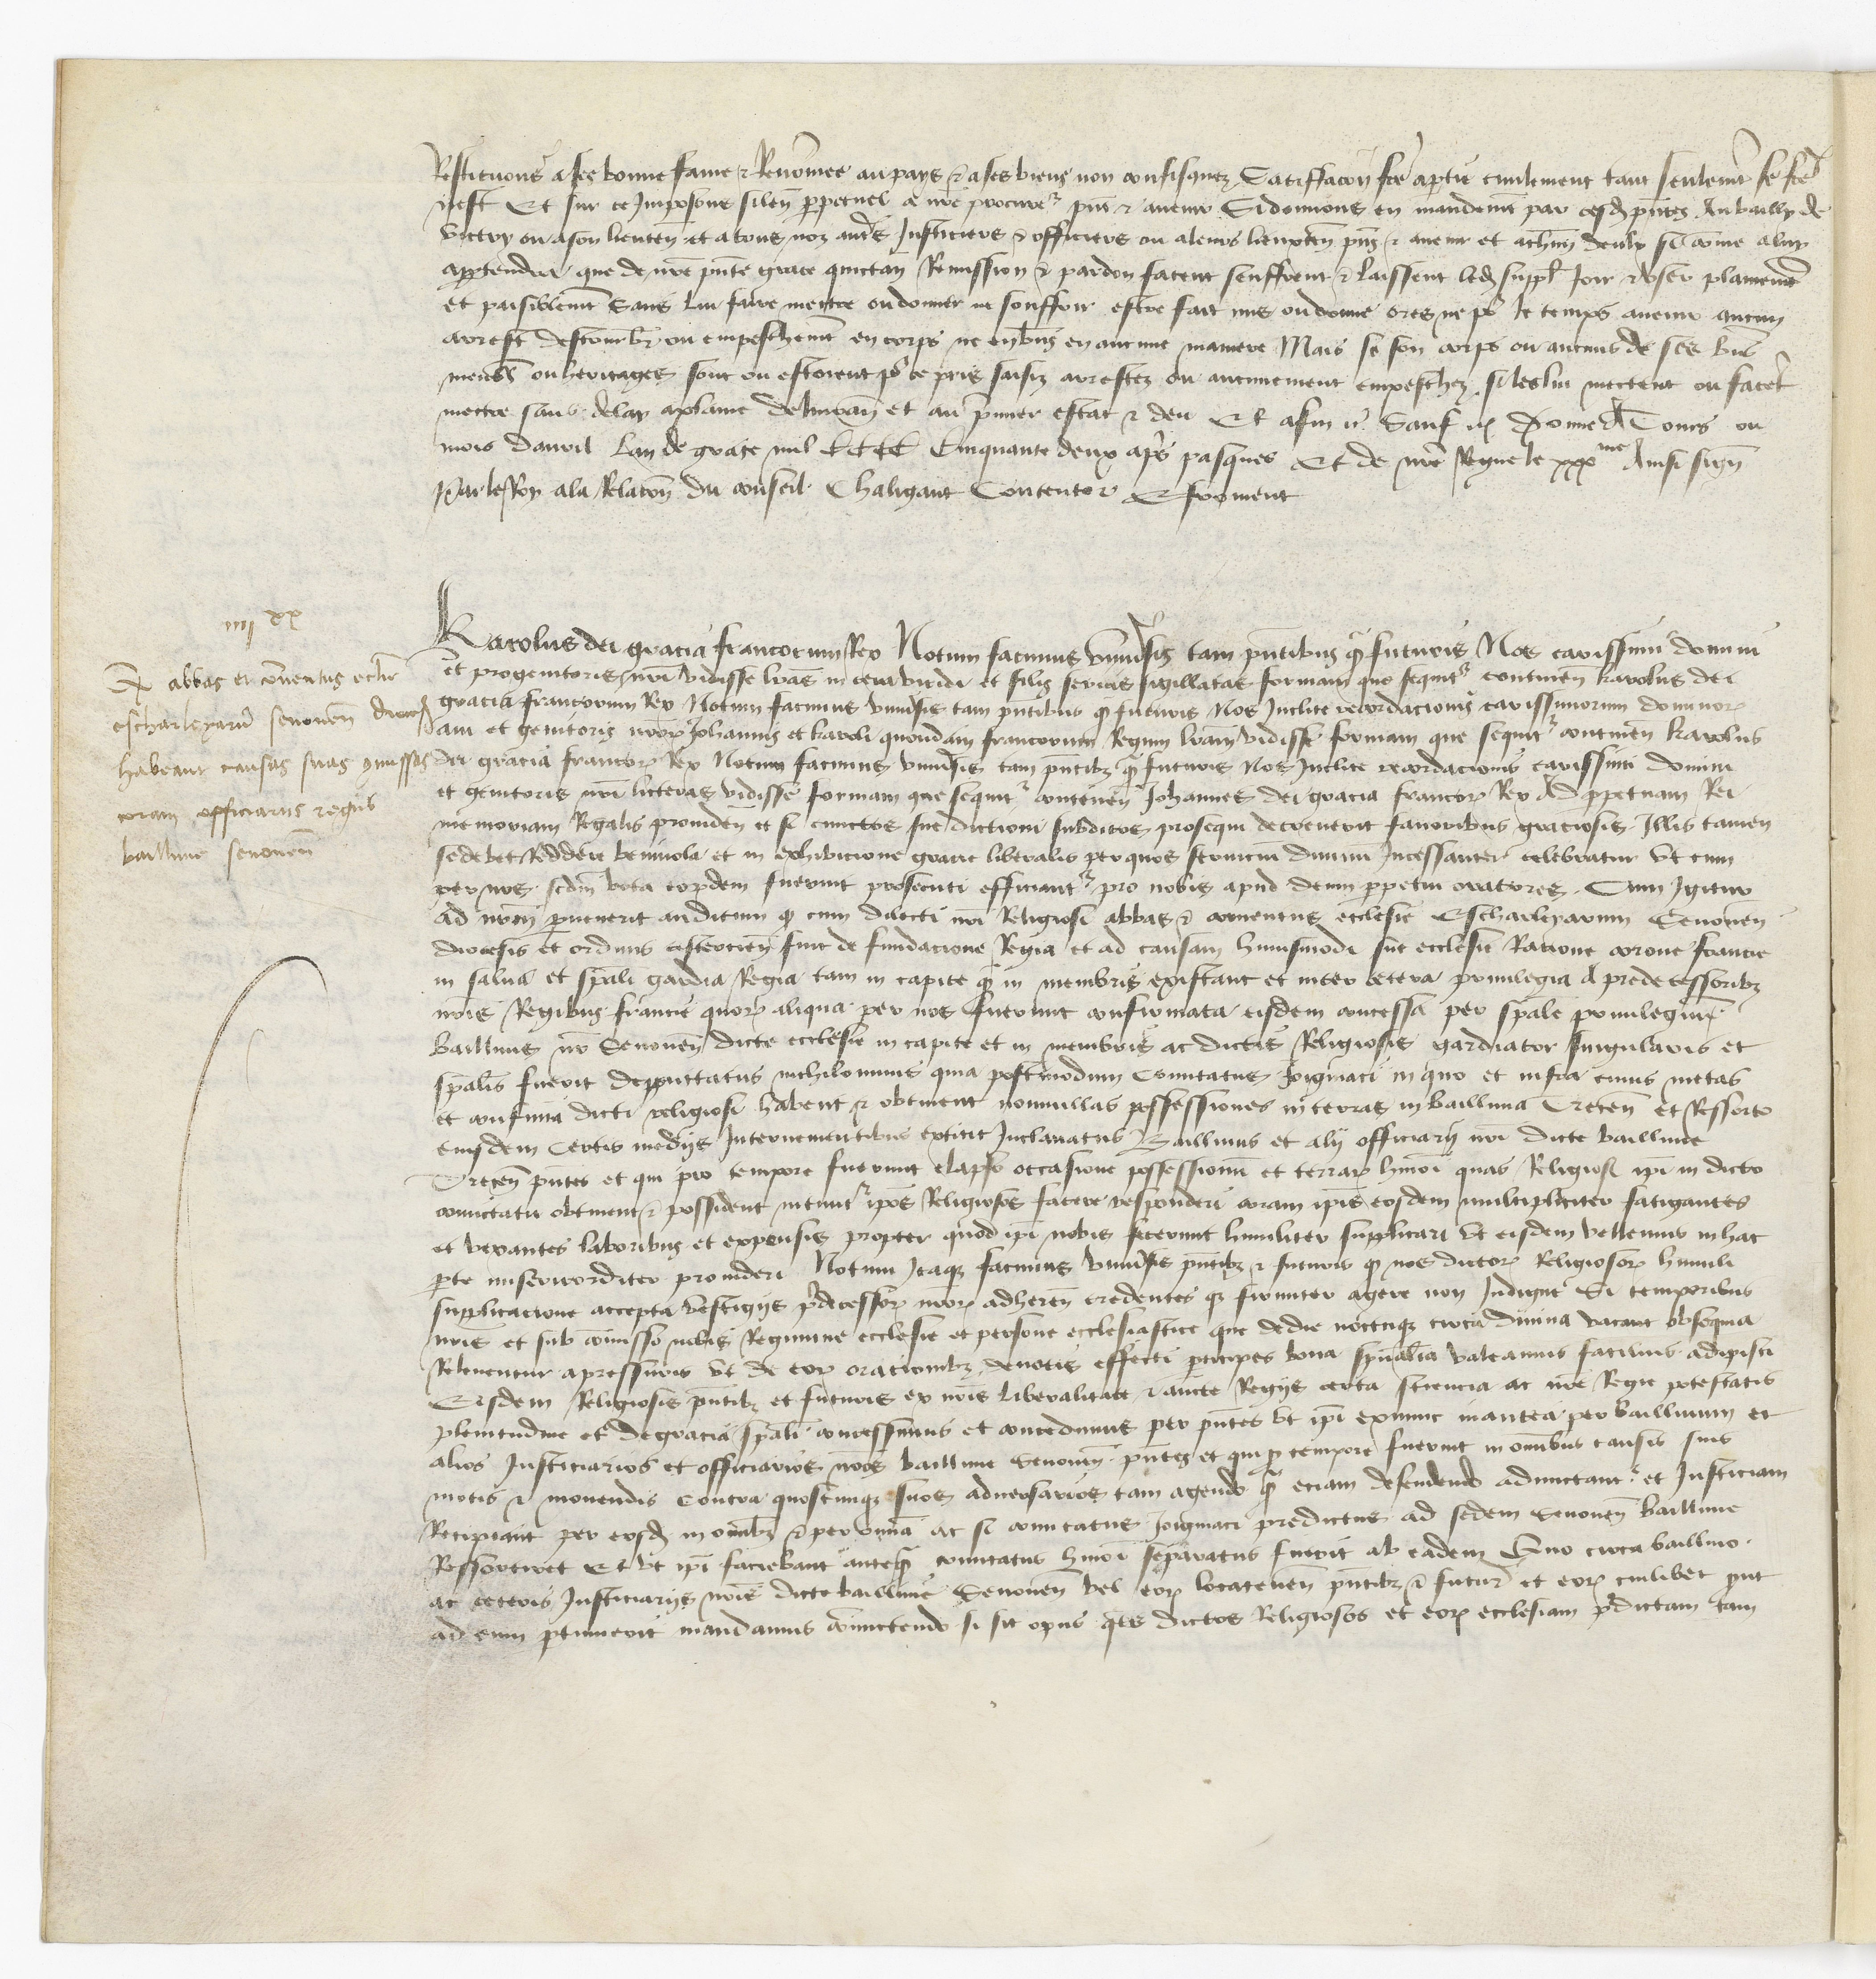 Restituons a ses bonne fame & Renommee au pays & a ses biens non confisquez Satisfacion fce a ptie civilement tant seulemt se fce
nest Et sur ce Imposons silen ppetuel a nre procur pnt & avenir Si donnons en mandemt par cesd pntes Au bailly de
victry ou a son lieuten et a tous noz autes Justiciers & officiers ou a leurs lieuxten pns & avenir et achun deulx si come a luy
appartendra que de nre pnte grace quictan Remission & pardon facent seuffrent & laissent led suppl Joir & user plainemt
et paisiblemt Sans lui faire mectre ou donner ne souffrir estre fait mis ou donne ores ne pr le temps avenir aucun
arrest destourbr ou empeschemt en corps ne en biens en aucune maniere Mais se son corps ou aucuns de ses biens
meubl ou heritages sont ou estoient pr ce pris saisiz arrestez ou aucunement empeschez si les lui mectent ou facet
mectre sans delay a plaine delivran et au pmier estat & deu Et afin &c Sauf &c Donne A Tours ou
mois davril Lan de grace mil CCCC Cinquante deux aps pasques Et de nre Regne le xxx me Ainsi sign
Par le Roy a la Relacon du conseil Chaligaut Contentor E froment
iiij xx
Q abbas et conventus ecclie
escharleyaru senonen dioces
habeant causas suas comissas
coram officiariis regiis
baillivie senonen
Karolus dei gracia francorum Rex Notum facimus universis tam pntibus q futuris Nos carissimi domini
et progenitoris nri vidisse lras in cera viridi et filis sericis sigillatas formam que sequit continen Karolus dei
gracia francorum Rex Notum facimus universis tam pntibus q futuris Nos Inclite recordacionis carissimorum dominor
avi et genitoris nror Johannis et karoli quondam francorum Regum lram vidisse formam que sequit continen Karolus
dei gracia francor Rex Notum facimus universis tam pntibz q futuris Nos Inclite recordacionis carissimi domini
et genitoris nri litteras vidisse formam que sequit continen Johannes dei gracia francor Rex Ad ppetuam Rei
memoriam Regalis providen et si cunctos sue dictioni subditos prosequi decreverit favoribus graciosis Illis tamen
se debet Reddere benivola et in exhibicione gracie liberalis per quos servicium divinum Incessanter celebratur Ut cum
per nos scdm vota eordem fuerint prosecuti efficiant pro nobis apud deum ppetui oratores Cum Igitur
ad nrm pervenerit auditum q cum dilecti nri Religiosi abbas & conventus ecclesie Escharleyarum Senonen
diocesis et ordinis cistercien sint de fundacione Regia et ad causam huiusmodi sue ecclesie Racione corone francie
in salva et spali gardia Regia tam in capite q in membris existant et inter cetera privilegia A predecessoribz
nris Regibus francie quor aliqua per nos fuerunt confirmata eisdem concessa per spale privilegium
baillivus nr Senonen dicte ecclesie in capite et in membris ac dictis Religiosis gardiator singularis et
spalis fuerit depputtatus nichilominus quia postmodum Comitatus Joigniaci in quo et infra cuius metas
et confinia dicti religiosi habent & obtinent nonnullas possessiones in terras in baillivia Trecen et Ressorto
eiusdem Certis mediis Intervenientibus extitit Inclavatus Baillivus et alii officiarii nri dicte baillivie
Trecen pntes et qui pro tempore fuerunt elapso occasione possessionum et terrar hmoi quas Religiosi ipi in dicto
comitatu obtinent & possident nitunt ipos Religiosos facere responderi coram ipis eosdem multipliciter fatigantes
et vexantes laboribus et expensis propter quod ipi nobis fecerunt humiliter supplicari Ut eisdem vellemus in hac
pte misericorditer provideri Notum Itaqz facimus Universis pntibz & futuris q nos dictor Religiosor humili
supplicacione accepta vestigiis pdecessor nror adheren credentes qz firmiter agere non Indigne Si temporibus
nris et sub comisso nobis Regimine ecclesie et persone ecclesiastice que de die noctuqz circa divina vacant obsequia
Releventur a pressuris Ut de eor oracionibz devotis effecti pticipes bona spiritualia valeamus facilius adipisci
Eisdem Religiosis pntibz et futuris ex nris liberalitate & aucte Regiis certa sciencia ac nre Regie potestatis
plenitudine et de gracia spali concessimus et concedimus per pntes Ut ipi ex nunc in antea per baillivum et
alios Justiciarios et officiarios nros baillivie Senonen pntes et qui p tempore fuerint in omnibus causis suis
motis & movendis Contra quoscunqz suos adversarios tam agendo q eciam defendendo adiunctant et Justiciam
Recipiant per eosd in omibz & per omnia ac si comitatus Joigniaci predictus ad sedem Senonen baillivie
Ressortiret Et Ut ipi faciebant anteq comitatus hmoi separatus fuerit ab eadem Quo circa baillivo
ac ceteris Justiciariis nris dicte baillivie Senonen vel eor locatenen pntibz & futur et eor cuilibet put
ad eum ptinuerit mandamus comictendo si sit opus qts dictos Religiosos et eor ecclesiam pdictam tam